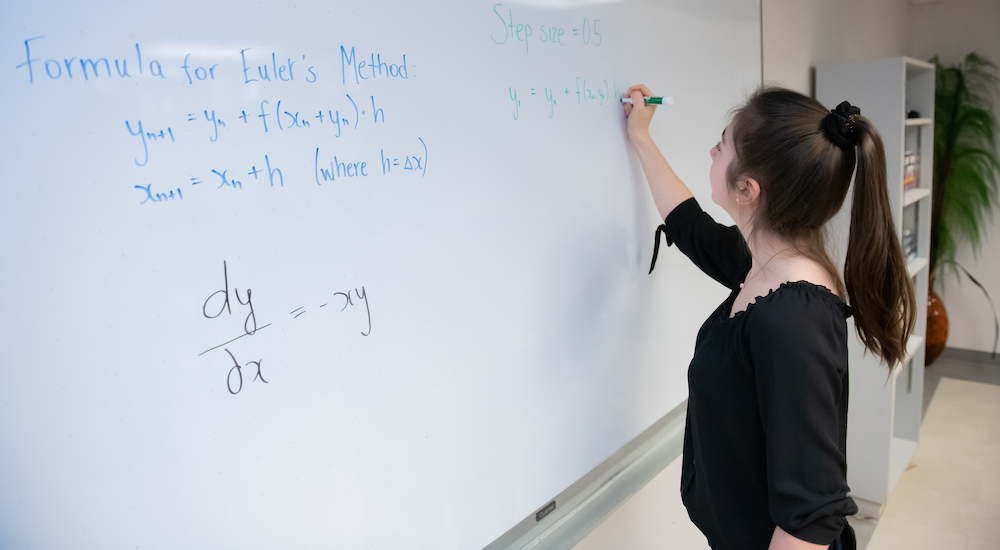 Formula for Euler's Method:
yₙ₊₁ = yₙ + f(xₙ + yₙ)·h
xₙ₊₁ = xₙ + h (where h = Δx)
dy/dx = -xy
Step size = 0.5
y₁ = y₀ + f(x₀, y₀)·h